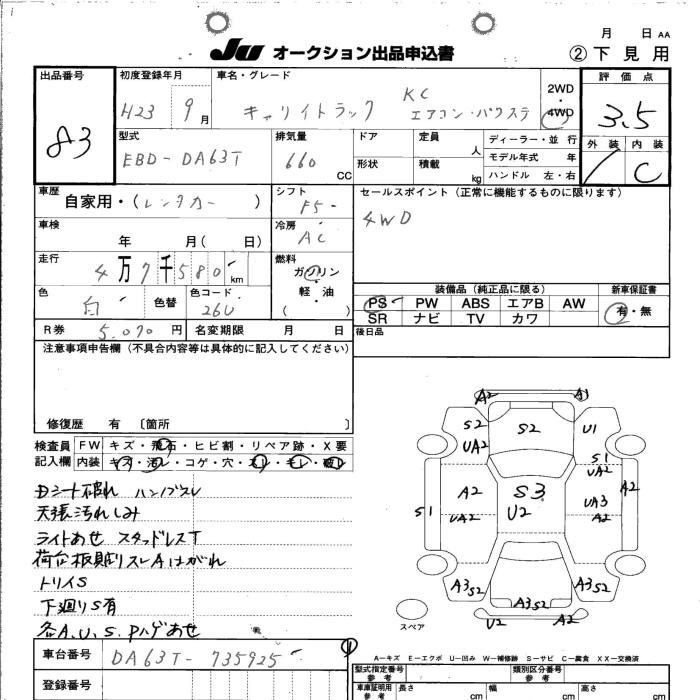 月 日 AA
JU オークション出品申込書 ②下見用
出品番号 83
初度登録年月 H23 9月
車名・グレード キャリイトラック KC エアコン・パワステ
2WD・4WD
評価点 3.5
外装 内装 C
型式 EBD-DA63T
排気量 660 CC
ドア 形状
定員 人 積載 kg
ディーラー・並行
モデル年式 年
ハンドル 左・右
車歴 自家用・(レンタカー)
シフト F5
セールスポイント(正常に機能するものに限ります)
4WD
車検 年 月( 日)
冷房 AC
走行 4万7千580km
燃料 ガソリン・軽油 ( )
色 白 色替 色コード 26U
装備品(純正品に限る) 新車保証書
PS PW ABS エアB AW 有・無
SR ナビ TV カワ
R券 5,070円 名変期限 月 日
後日品
注意事項申告欄(不具合内容等は具体的に記入してください)
修復歴 有 〔箇所 〕
検査員記入欄 FW キズ・飛石・ヒビ割・リペア跡・X要
内装 キズ・汚レ・コゲ・穴・スレ・キレ・破レ
Dシート破れ ハンドスレ
天張汚れしみ
ライトあせ スタッドレスT
荷台板貼りスレAはがれ
トリイS
下廻りS有
各A.U.S.Pハゲあせ
A2 A1
S2 S2 U1
UA2 S1 UA2
A2 S3 UA3 A2
S1 UA2 U2 A2
A3S2 A3S2 A3S2
U2 A2
スペア
車台番号 DA63T-735925
A-キズ E-エクボ U-凹み W-補修跡 S-サビ C-腐食 XX-交換済
登録番号
型式指定番号 参考 類別区分番号 参考
車庫証明用 参考 長さ cm 幅 cm 高さ cm